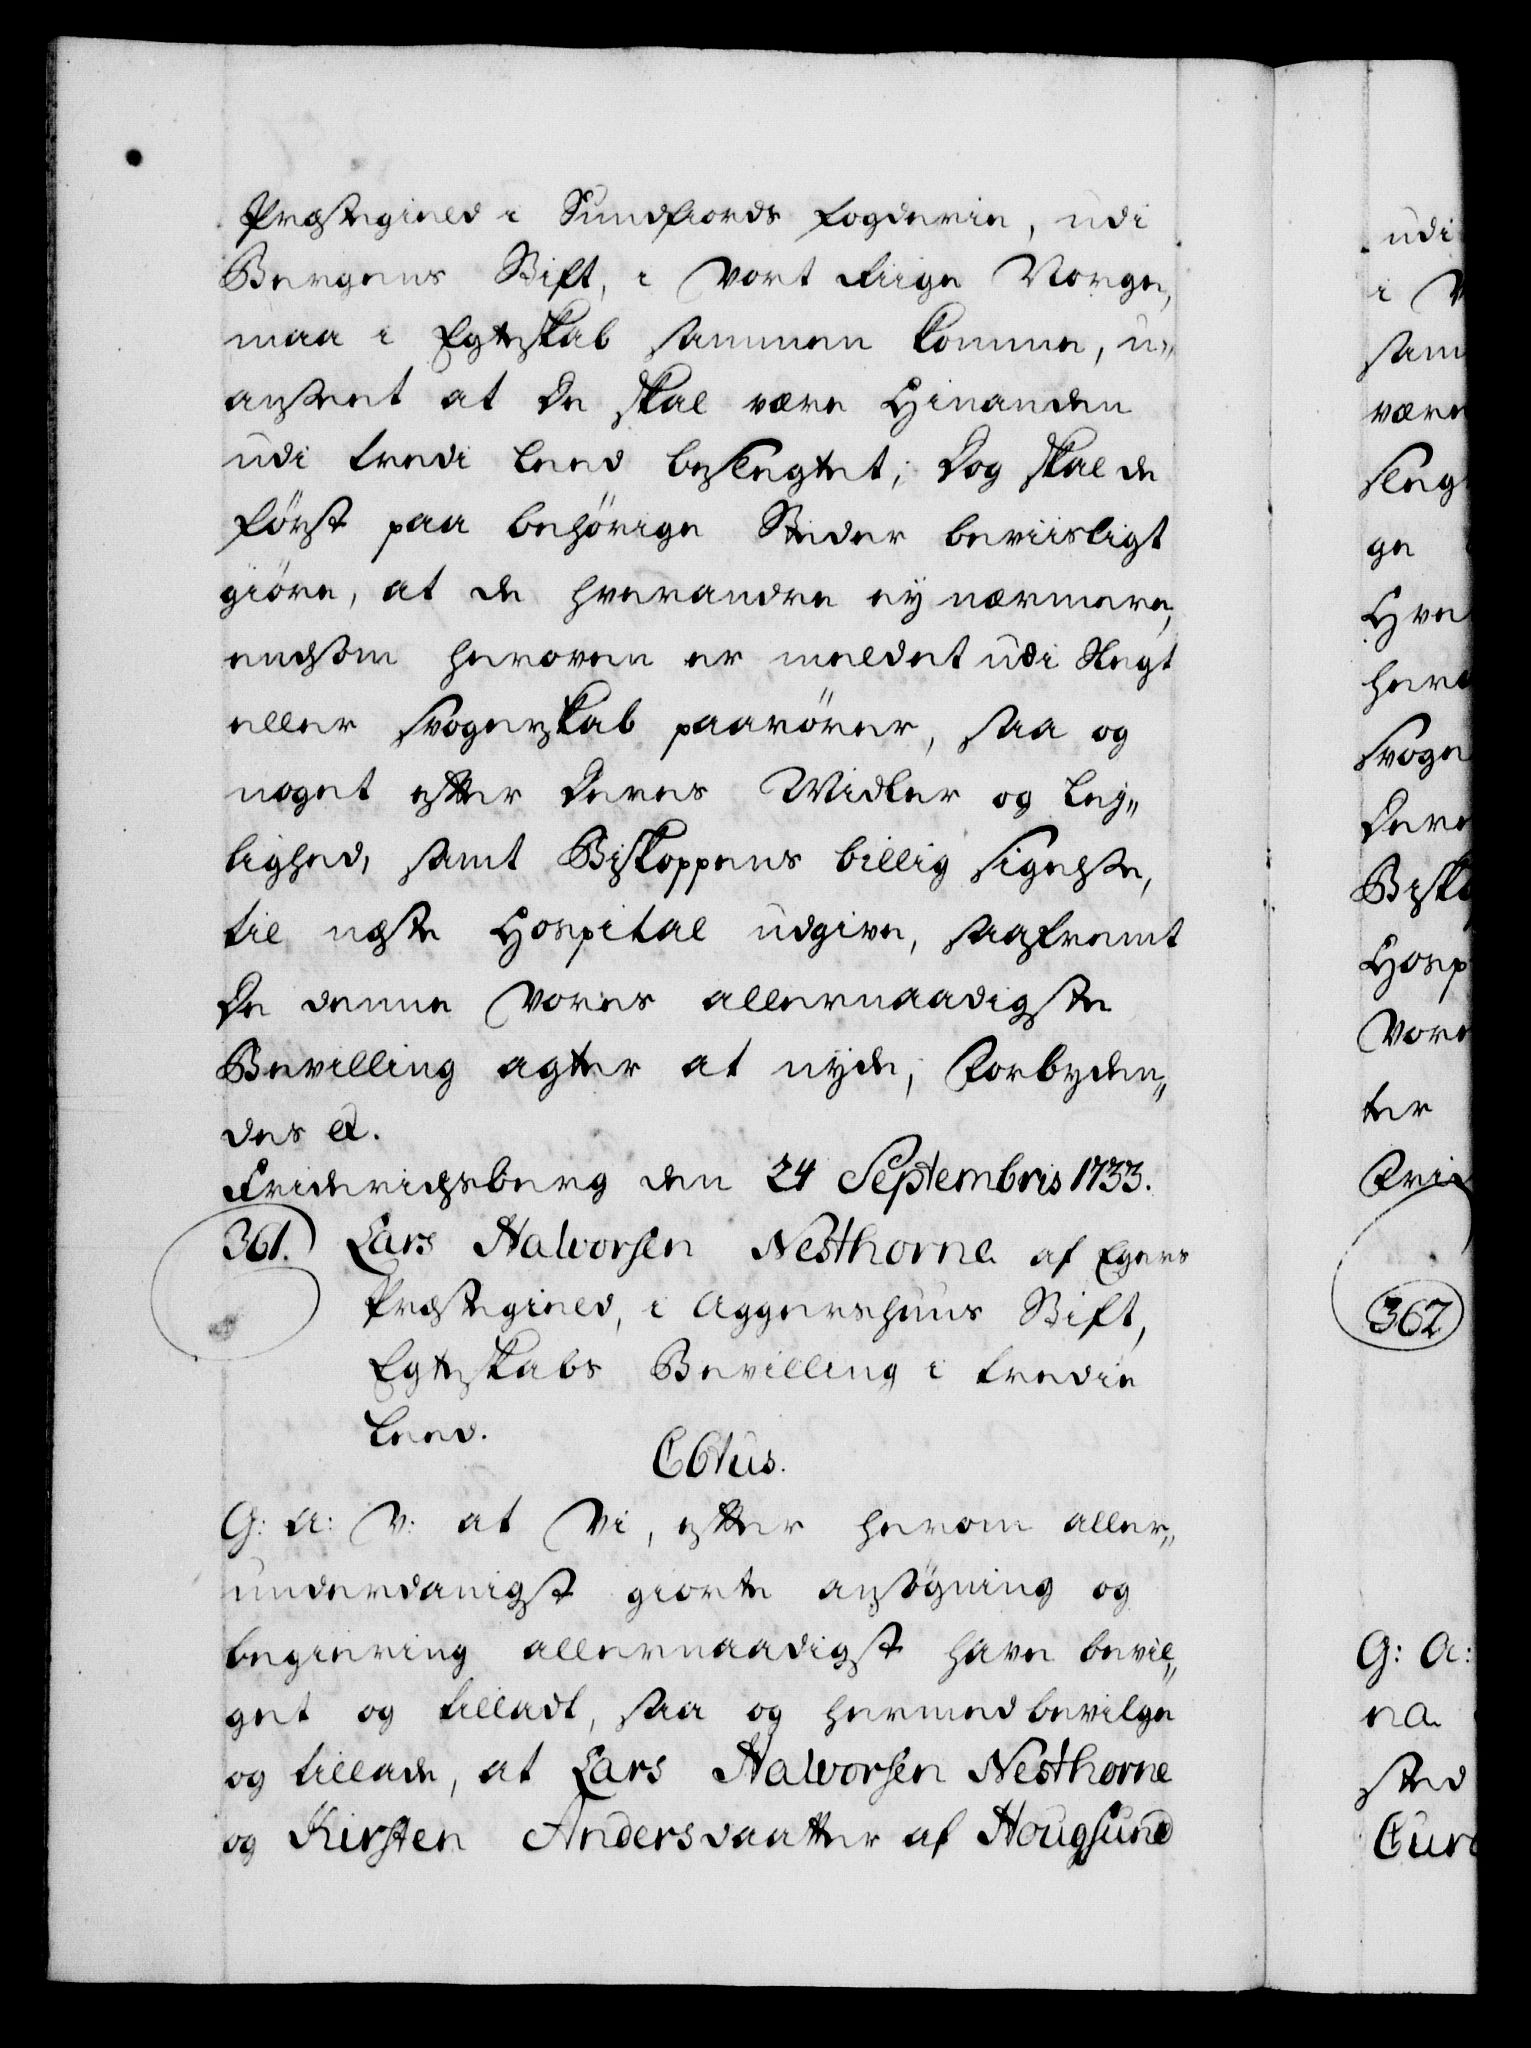 Præstegield i Sundfiords fogderie, udi
Bergens Stift, i Vort Riige Norge,
maa i Egteskab sammen komme, u„
anseet at De skal være Hinanden
udi tredi Leed beslegtet; Dog skal de
først paa behørige Steder beviisligt
giøre, at de hverandre ey nærmere,
endsom heroven er meldet udi Slegt
eller Svogerskab paarører, saa og
noget efter Deres Widler og Ley„
lighed, samt Biskoppens billig sigelse,
til næste Hospital udgive, saafremt
De denne Vores allernaadigste
Bevilling agter at nyde; Forbyden„
des &.
Friderichsberg den 24 Septembris 1733.
361. Lars Halvorsen Nesthorne af Egers
Præstegield, i Aggershuus Stift,
Egteskabs Bevilling i tredie
Leed.
C6tus.
G: A: V: at Vi, efter herom aller„
underdanigst giorte ansøgning og
begiering allernaadigst have bevil„
get og tilladt, saa og hermed bevilge
og tillade, at Lars Halvorsen Nesthorne
og Kirsten Andersdaatter af Hougsund
udi
i V
sam
være
sleg
ge
Hve
hero
Svoge
Dere
Bisko
Hosp
Vore
ter
Frid
362
G: A:
na
sted
Cur